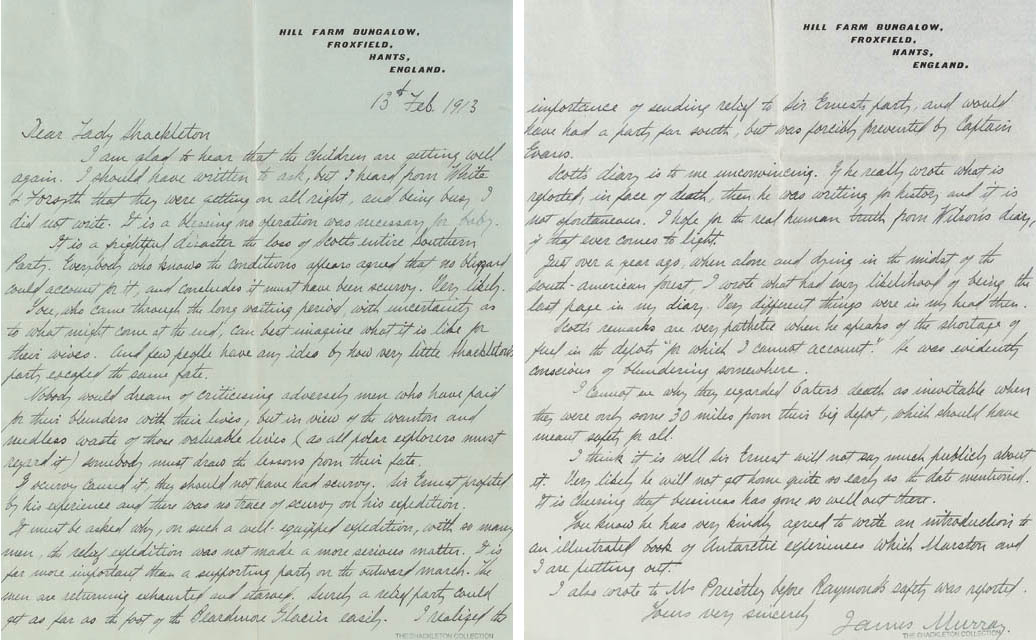 HILL FARM BUNGALOW,
FROXFIELD,
HANTS,
ENGLAND.
13th Feb. 1913
Dear Lady Shackleton
I am glad to hear that the children are getting well
again. I should have written to ask, but I heard from White
& Forsyth that they were getting on all right, and being busy I
did not write. It is a blessing no operation was necessary for baby.
It is a frightful disaster the loss of Scott's entire Southern
Party. Everybody who knows the conditions appears agreed that no blizzard
could account for it, and concludes it must have been scurvy. Very likely.
You, who came through the long waiting period, with uncertainty as
to what might come at the end, can best imagine what it is like for
their wives. And few people have any idea by how very little Shackleton's
party escaped the same fate.
Nobody would dream of criticising adversely men who have paid
for their blunders with their lives, but in view of the wanton and
needless waste of those valuable lives (as all polar explorers must
regard it) somebody must draw the lessons from their fate.
If scurvy caused it, they should not have had scurvy. Sir Ernest profited
by his experience and there was no trace of scurvy on his expedition.
It must be asked why, on such a well-equipped expedition, with so many
men, the relief expedition was not made a more serious matter. It is
far more important than a supporting party on the outward march. The
men are returning exhausted and starved. Surely a relief party could
get as far as the foot of the Beardmore Glacier easily. I realised the
THE SHACKLETON COLLECTION
HILL FARM BUNGALOW,
FROXFIELD,
HANTS,
ENGLAND.
importance of sending relief to Sir Ernest's party, and would
have had a party far south, but was forcibly prevented by Captain
Evans.
Scott's diary is to me unconvincing. If he really wrote what is
reported, in face of death, then he was writing for history and it is
not spontaneous. I hope for the real human truth from Wilson's diary,
if that ever comes to light.
Just over a year ago, when alone and dying in the midst of the
south-american forest, I wrote what had every likelihood of being the
last page in my diary. Very different things were in my head then.
Scott's remarks are very pathetic when he speaks of the shortage of
fuel in the depots "for which I cannot account". He was evidently
conscious of blundering somewhere.
I cannot see why they regarded Oates's death as inevitable when
they were only some 30 miles from their big depot, which should have
meant safety for all.
I think it is well Sir Ernest will not say much publicly about
it. Very likely he will not get home quite so early as the date mentioned.
It is cheering that business has gone so well out there.
You know he has very kindly agreed to write an introduction to
an illustrated book of Antarctic experiences which Marston and
I are putting out.
I also wrote to Mrs Priestley before Raymond's safety was reported.
Yours very sincerely
James Murray.
THE SHACKLETON COLLECTION